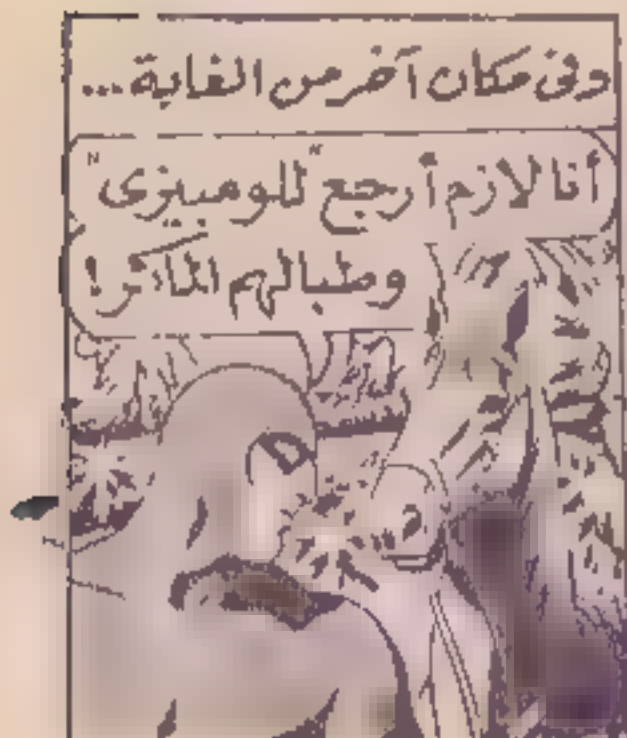 وفى مكان آخر من الغابة...
أنا لازم أرجع "للومبيزى"
وطبالهم الماكر!